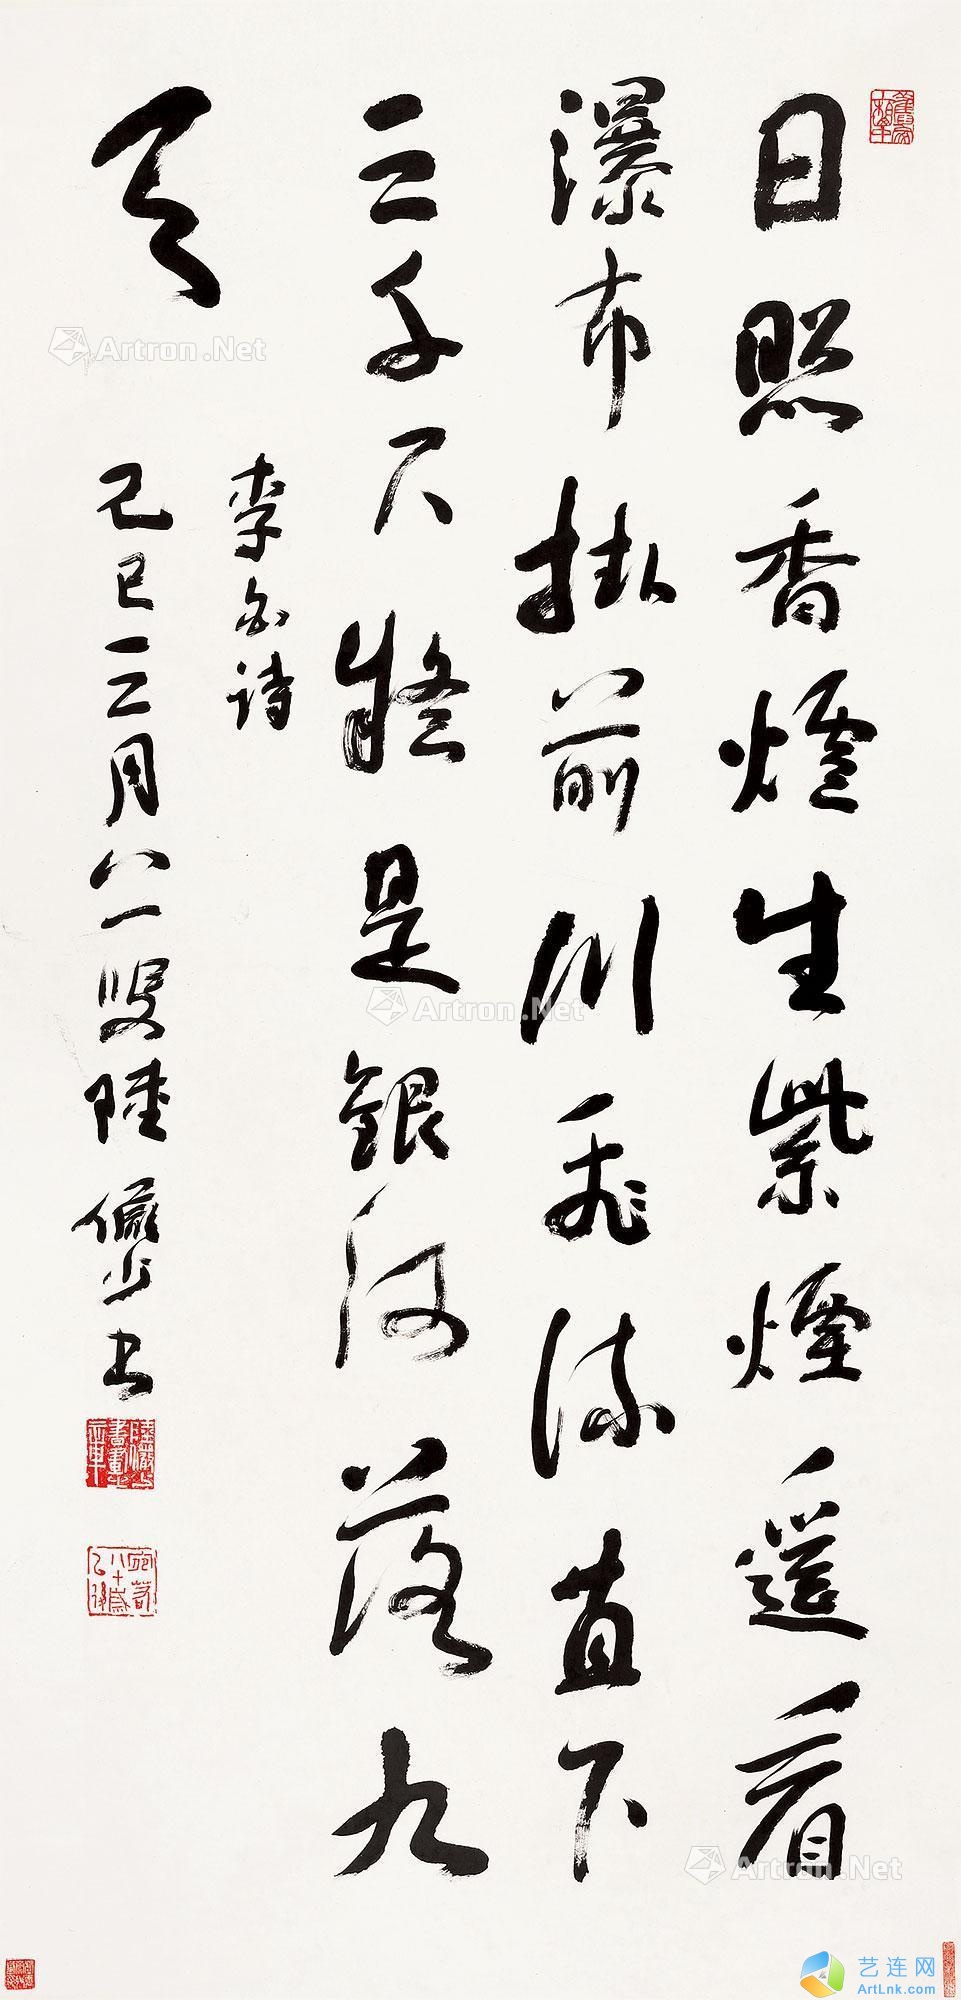 日照香爐生紫煙遙看
瀑布掛前川飛流直下
三千尺疑是銀河落九
天
李白詩
己巳三月八一叟陸儼少書
Artron.Net
Artron.Net
Artron.Net
艺连网
ArtLnk.com